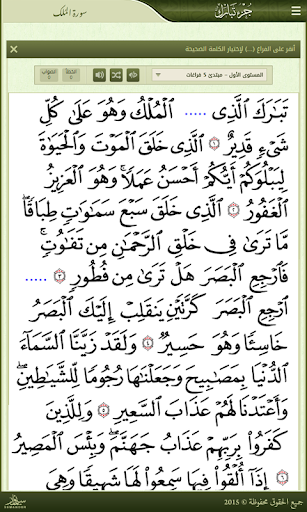 جزء تبارك
سورة الملك
أنقر على الفراغ (...) لإختيار الكلمة الصحيحة
المستوى الأول - مبتدئ 5 فراغات
تَبَٰرَكَ ٱلَّذِى ..... ٱلْمُلْكُ وَهُوَ عَلَىٰ كُلِّ
شَىْءٍ قَدِيرٌ ١ ٱلَّذِى خَلَقَ ٱلْمَوْتَ وَٱلْحَيَوٰةَ
لِيَبْلُوَكُمْ أَيُّكُمْ أَحْسَنُ عَمَلًا ۚ وَهُوَ ٱلْعَزِيزُ
ٱلْغَفُورُ ٢ ٱلَّذِى خَلَقَ سَبْعَ سَمَٰوَٰتٍ طِبَاقًا ۖ
مَّا تَرَىٰ فِى خَلْقِ ٱلرَّحْمَٰنِ مِن تَفَٰوُتٍ ۖ
فَٱرْجِعِ ٱلْبَصَرَ هَلْ تَرَىٰ مِن فُطُورٍ ٣ .....
ٱرْجِعِ ٱلْبَصَرَ كَرَّتَيْنِ يَنقَلِبْ إِلَيْكَ ٱلْبَصَرُ
خَاسِئًا وَهُوَ حَسِيرٌ ٤ وَلَقَدْ زَيَّنَّا ٱلسَّمَآءَ
ٱلدُّنْيَا بِمَصَٰبِيحَ وَجَعَلْنَٰهَا رُجُومًا لِّلشَّيَٰطِينِ ۖ
وَأَعْتَدْنَا لَهُمْ عَذَابَ ٱلسَّعِيرِ ٥ وَلِلَّذِينَ
كَفَرُوا۟ بِرَبِّهِمْ عَذَابُ جَهَنَّمَ ۖ وَبِئْسَ ٱلْمَصِيرُ
٦ إِذَآ أُلْقُوا۟ فِيهَا سَمِعُوا۟ لَهَا شَهِيقًا وَهِىَ
جميع الحقوق محفوظة © 2015